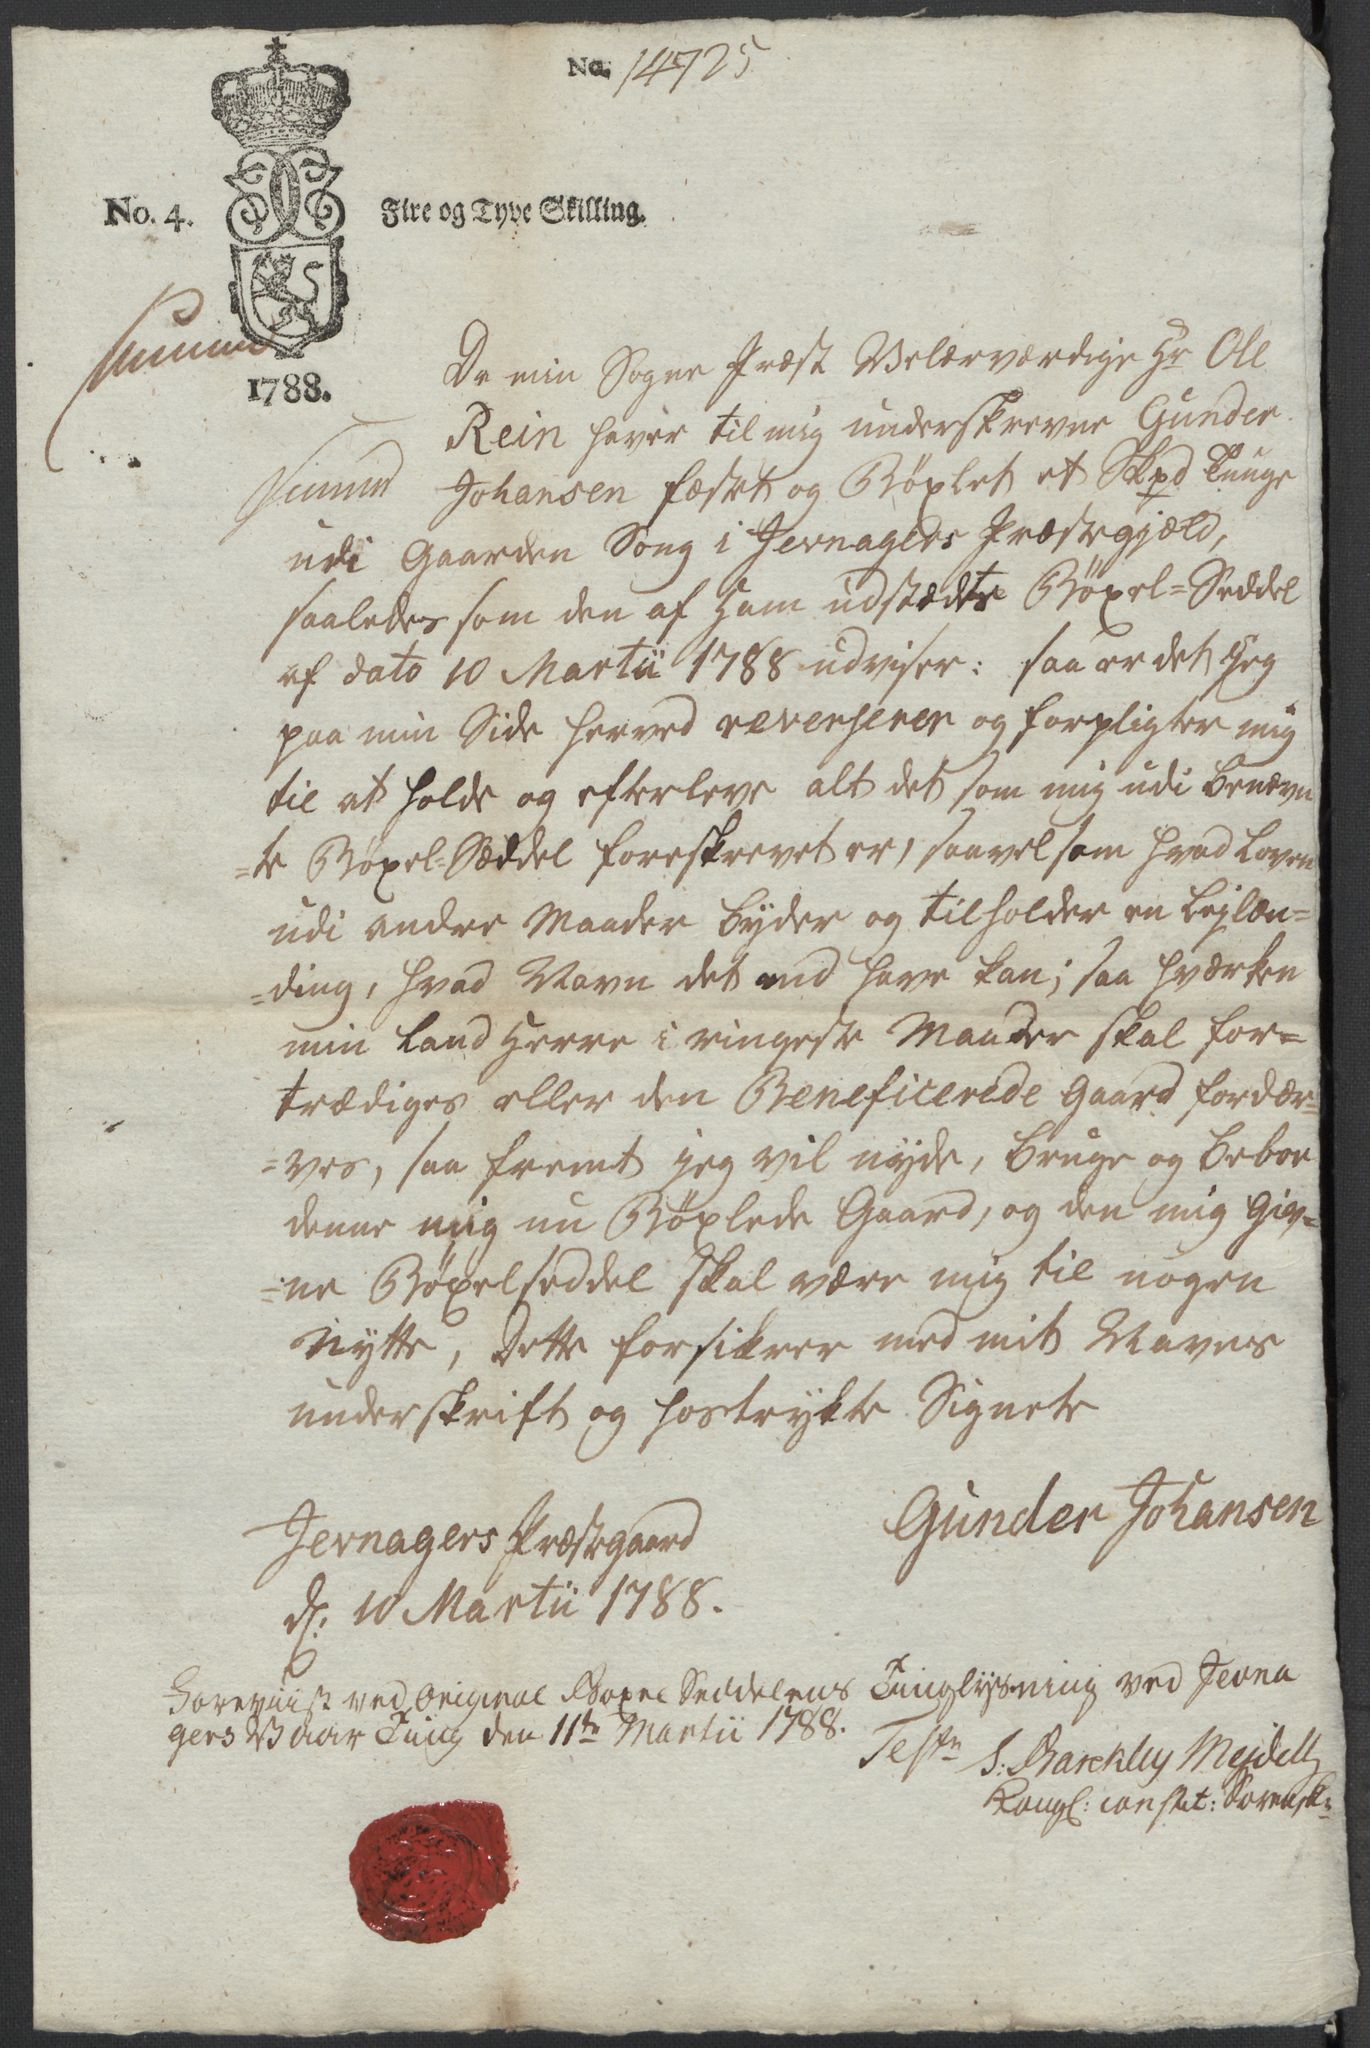 No. 14725
No. 4. Fire og Tyve Skilling.
1788.
Da min Sogne Præst Velærværdige Hr Ole
Rein haver til mig underskrevne Gunder
Johansen fæstet og Böxlet et Skpd Tunge
udi Gaarden Song i Jevnagers Præstegjæld,
saaledes som den af Ham udstædte Böxel=Seddel
af dato 10 Martii 1788 udviser: saa er det Jeg
paa min Side herved reverserer og forpligter mig
til at holde og efterleve alt det som mig udi benævn
=te Böxel=Seddel foreskrevet er, saavelsom hvad Loven
udi andre Maader byder og tilholder en Leglæn=
=ding, hvad Navn det end have kan; saa hværken
min Land Herre i ringeste Maader skal for=
trædiges eller den Beneficerede Gaard fordær=
=ves, saa fremt jeg vil nyde, bruge og beboe
denne mig nu Böxlede Gaard, og den mig giv=
=ne Böxelseddel skal være mig til nogen
Nytte, Dette forsikrer med mit Navns
underskrift og hostrykte Signete
Gunder Johansen
Jevnagers Præstegaard
d. 10 Martii 1788.
Foreviist ved Original Böxel Seddelens Tinglysning ved Jevna
gers Vaar Ting den 11te Martii 1788.
Testr S: Barckley Mejdell
Kongl: constit: Sorensk: